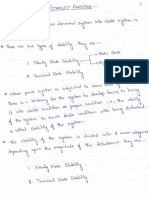 STABILITY ANALYSIS :-
abnormal system into stable system is
→ There are two types of stability. They are :-
i. Steady State Stability
ii. Transient State Stability
→ When power system is subjected to
there is a tendency for the system to develop forces to bring
its state condition as proper condition i.e., the ability
of the system to reach stable condition with being disturbed is
called stability of the system.
→ The stability of the system is divided into 2 main categories
depending upon the magnitude of the disturbance. They are
i. Steady State Stability.
ii. Transient State Stability.